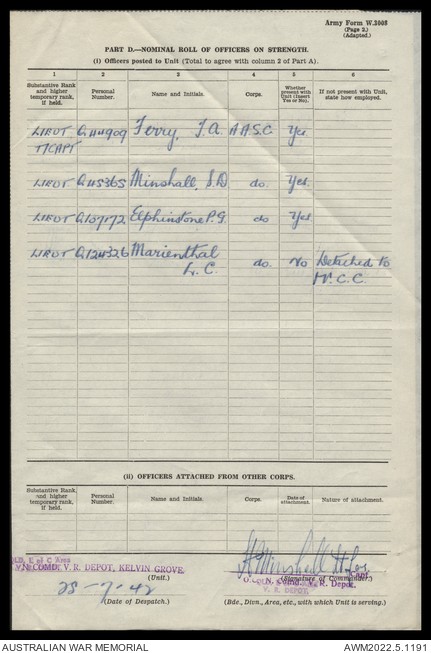 Army Form W.3008
(Page 2.)
(Adapted.)
PART D.—NOMINAL ROLL OF OFFICERS ON STRENGTH.
(i) Officers posted to Unit (Total to agree with column 2 of Part A).
1 2 3 4 5 6
Substantive Rank and higher temporary rank, if held. Personal Number. Name and Initials. Corps. Whether present with Unit (Insert Yes or No). If not present with Unit, state how employed.
LIEUT Q44909 Terry, J.A. A.A.S.C. Yes
T/CAPT
LIEUT Q45365 Minshall, S.D. do. Yes.
LIEUT Q107172 Elphinstone P.G. do Yes.
LIEUT Q124326 Marienthal do. No Detached to
L.C. C.C.
(ii) OFFICERS ATTACHED FROM OTHER CORPS.
Substantive Rank and higher temporary rank, if held. Personal Number. Name and Initials. Corps. Date of attachment. Nature of attachment.
Minshall
V.R. DEPOT, KELVIN GROVE. Capt.
(Unit.) (Signature of Commander.)
V.R. Depot.
V. R. DEPOT.
28-7-42
(Date of Despatch.) (Bde., Divn., Area, etc., with which Unit is serving.)
AUSTRALIAN WAR MEMORIAL AWM2022.5.1191